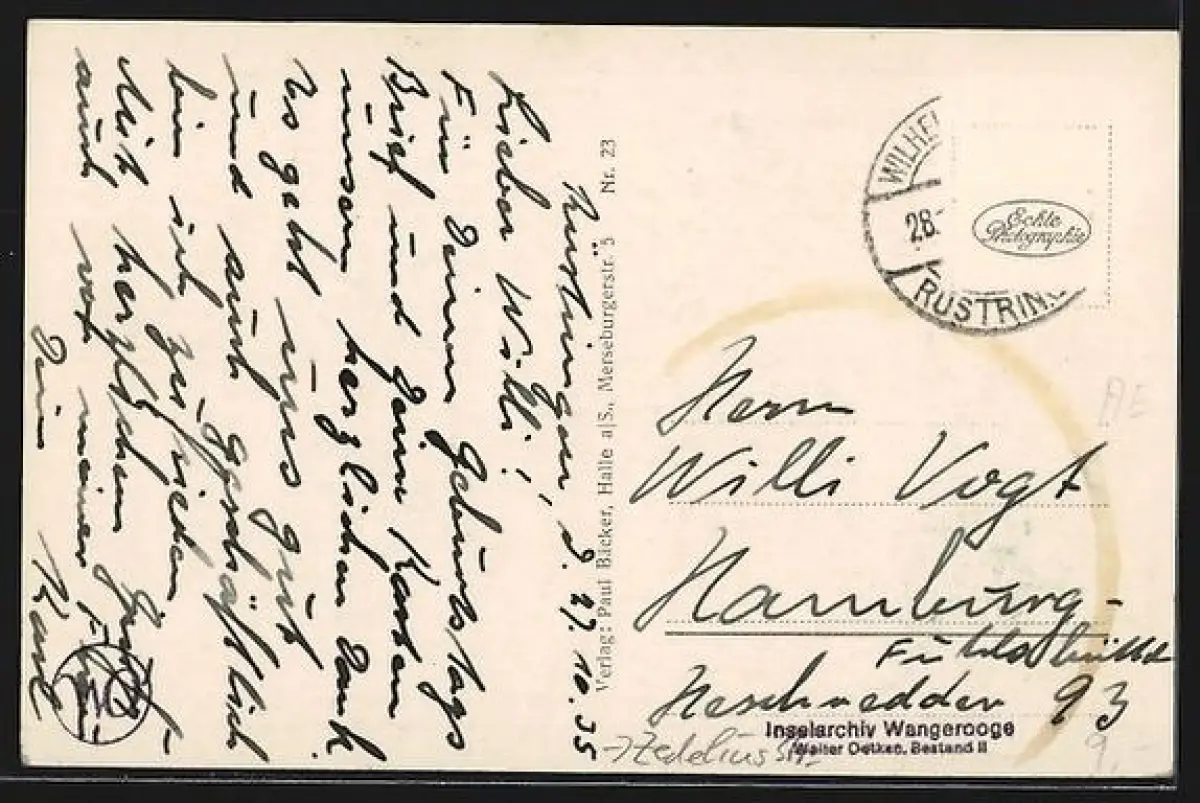 Rüstringen, d. 27. 10. 35
Lieber Willi!
Für Deinen Geburtstags
Brief und Deine Karten
unsern herzlichen Dank
Es geht uns gut
und auch geschäftlich
bin ich zufrieden
Mit herzlichen
auch von meiner
Dein Karl
Verlag: Paul Bäcker, Halle a/S., Merseburgerstr. 5 Nr. 23
WILHE
28.
RÜSTRIN
Echte
Photographie
Herrn
Willi Vogt
Hamburg-
Fuhlsbüttel
Heschredder 93
Inselarchiv Wangerooge
Walter Oetken, Bestand II
Zedeliusstr.
AE
9,-